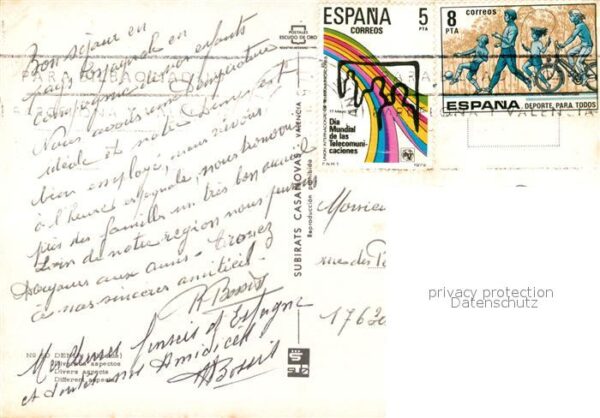 Bon séjour en
pays espagnole en
compagnie de nos enfants
Nous avons une température
idéale et notre temps est
bien employé, nous vivons
à l'heure espagnole, nous trouvons
près des familles un très bon accueil
Loin de notre région nous pensons
toujours aux amis. Trouvez
ici nos sincères amitiés.
R Bossis
Meilleurs pensées d'Espagne
et toutes nos Amitiés
Nº 50 DENIA
Diversos aspectos
Divers aspects
Different aspects
POSTALES
ESCUDO DE ORO
SUBIRATS CASANOVAS. VALENCIA
Reproducción prohibida
ESPAÑA 5
CORREOS PTA
Día
Mundial
de las
Telecomuni-
caciones
F.N.M.T. 1979
8 correos
PTA
ESPAÑA DEPORTE PARA TODOS
VALENCIA
Monsieur
rue des
1763
privacy protection
Datenschutz